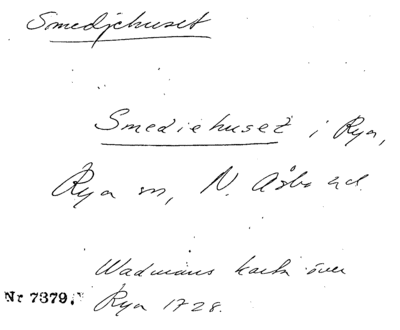 Smedjehuset
Smediehuset i Rya,
Rya sn, N. Åsbo hd.
Wadmans karta över
Rya 1728.
Nr 7379.